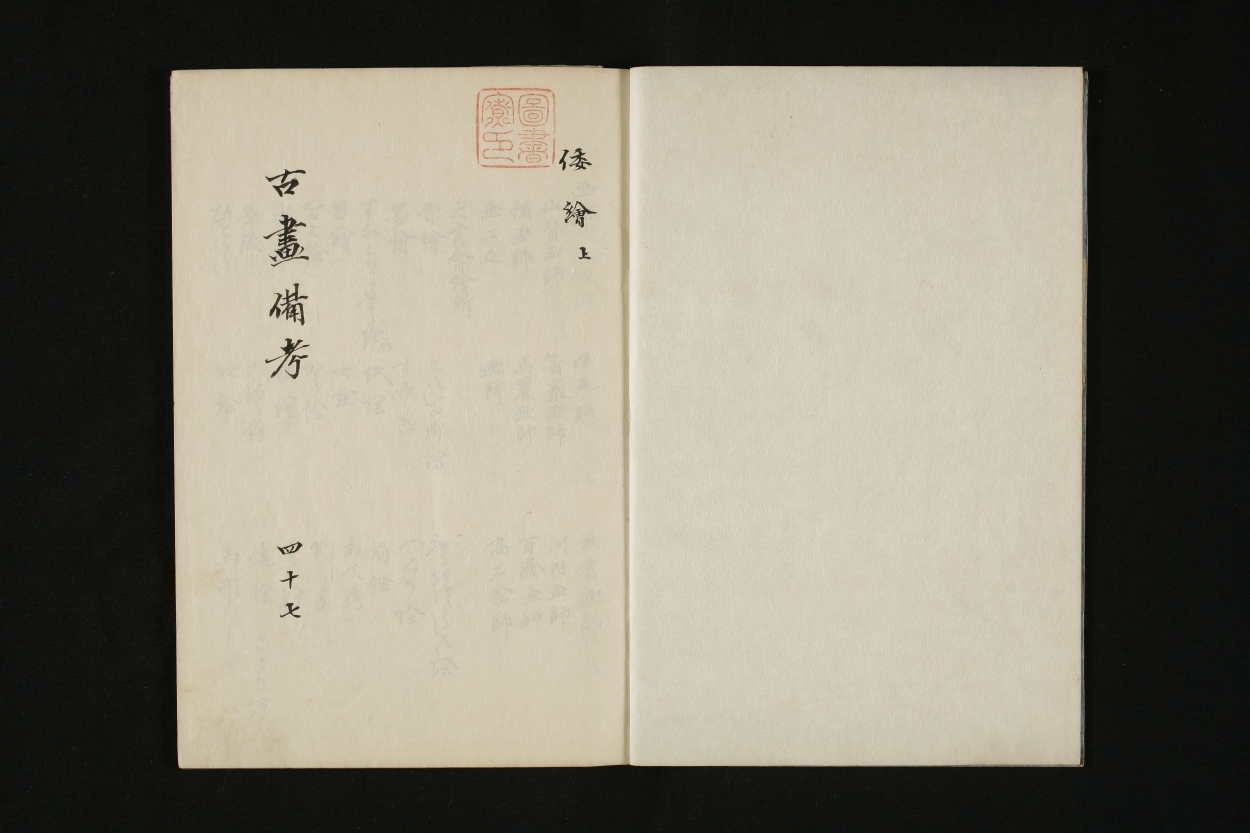 倭繪上
圖書
寮印
古畫備考 四十七